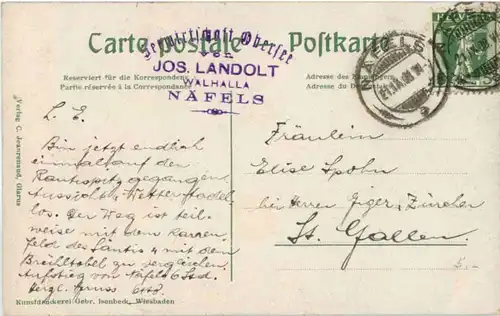 Carte postale Postkarte
Reserviert für die Korrespondenz
Partie réservée à la Correspondance
Adresse des
Adresse du
Bergwirtschaft Obersee
von
JOS. LANDOLT
WALHALLA
NÄFELS
NÄFELS
L. E.
Bin jetzt endlich
einmal auf den
Rautispitz gegangen.
Aussicht & Wetter tadel
los. Der Weg ist teil-
weise mit dem Karren
feld des Säntis & mit dem
Brühltobel zu vergleichen.
Aufstieg von Näfels 6 Std.
Hergl. Gruss
Fräulein
Elise Spohn
bei Herrn Giger,
St. Gallen.
5.-
Verlag C. Jeanrenaud, Glarus
Kunstdruckerei Gebr. Isenbeck, Wiesbaden